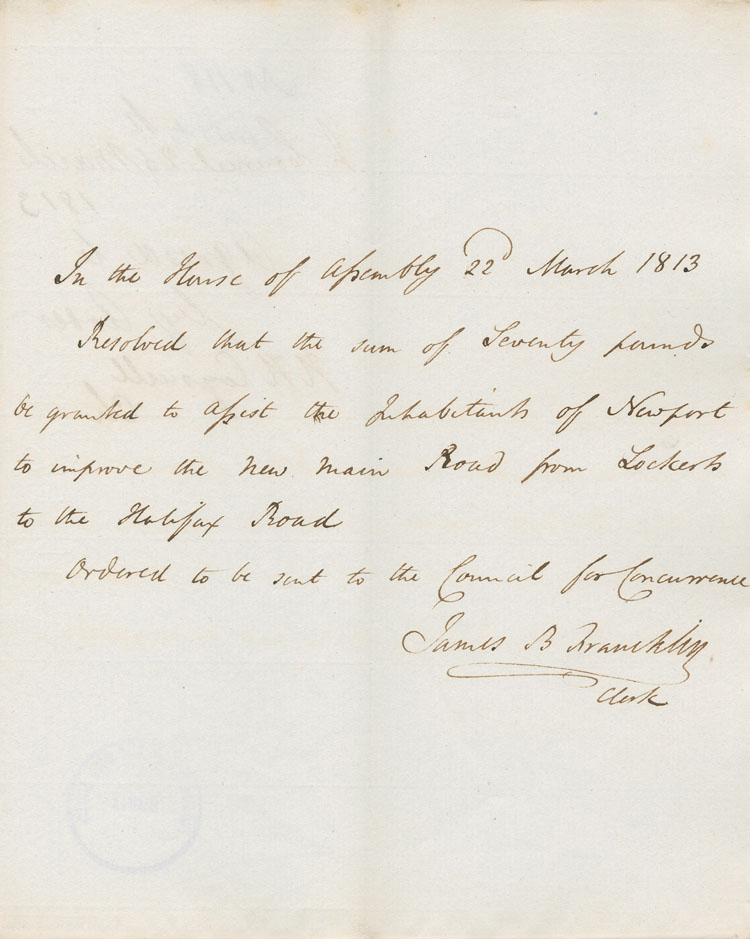 In the House of Assembly 22d March 1813
Resolved that the sum of Seventy pounds
be granted to assist the Inhabitants of Newport
to improve the new main Road from Lockerts
to the Halifax Road
Ordered to be sent to the Council for Concurrence
James B Franchklin
Clerk